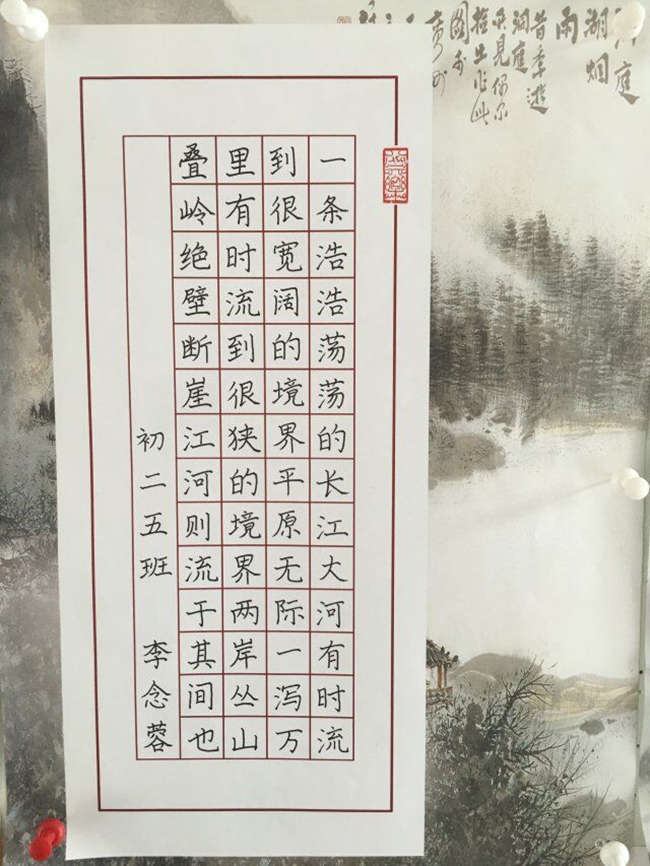 一条浩浩荡荡的长江大河有时流
到很宽阔的境界平原无际一泻万
里有时流到很狭的境界两岸丛山
叠岭绝壁断崖江河则流于其间也
初二五班 李念蓉
洞庭
湖烟
雨
昔年游
洞庭